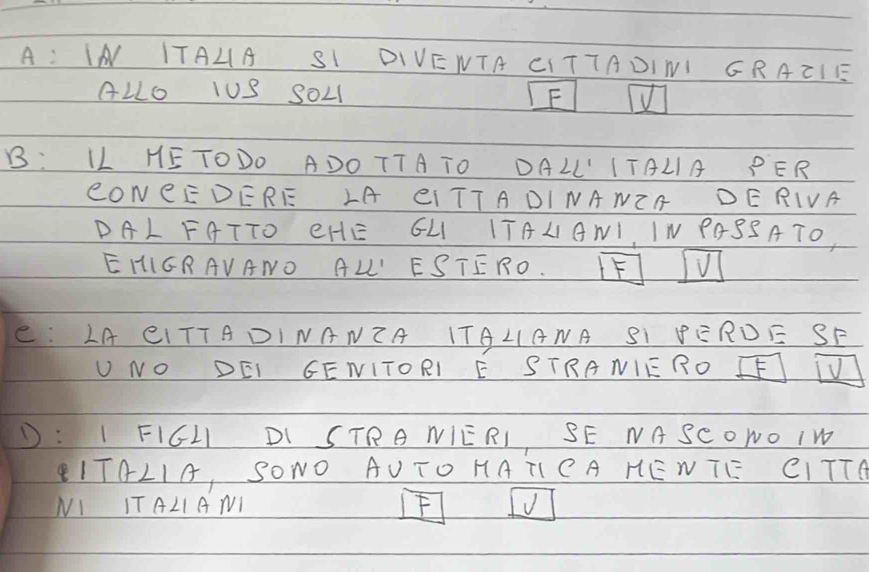 A: IN ITALIA SI DIVENTA CITTADINI GRAZIE
ALLO IUS SOLI F V
B: IL METODO ADOTTATO DALL' ITALIA PER
CONCEDERE LA CITTADINANZA DERIVA
DAL FATTO CHE GLI ITALIANI, IN PASSATO,
EMIGRAVANO ALL' ESTERO. F V
C: LA CITTADINANZA ITALIANA SI PERDE SE
UNO DEI GENITORI È STRANIERO F V
D: I FIGLI DI STRANIERI, SE NASCONO IN
ITALIA, SONO AUTOMATICAMENTE CITTA
NI ITALIANI F V